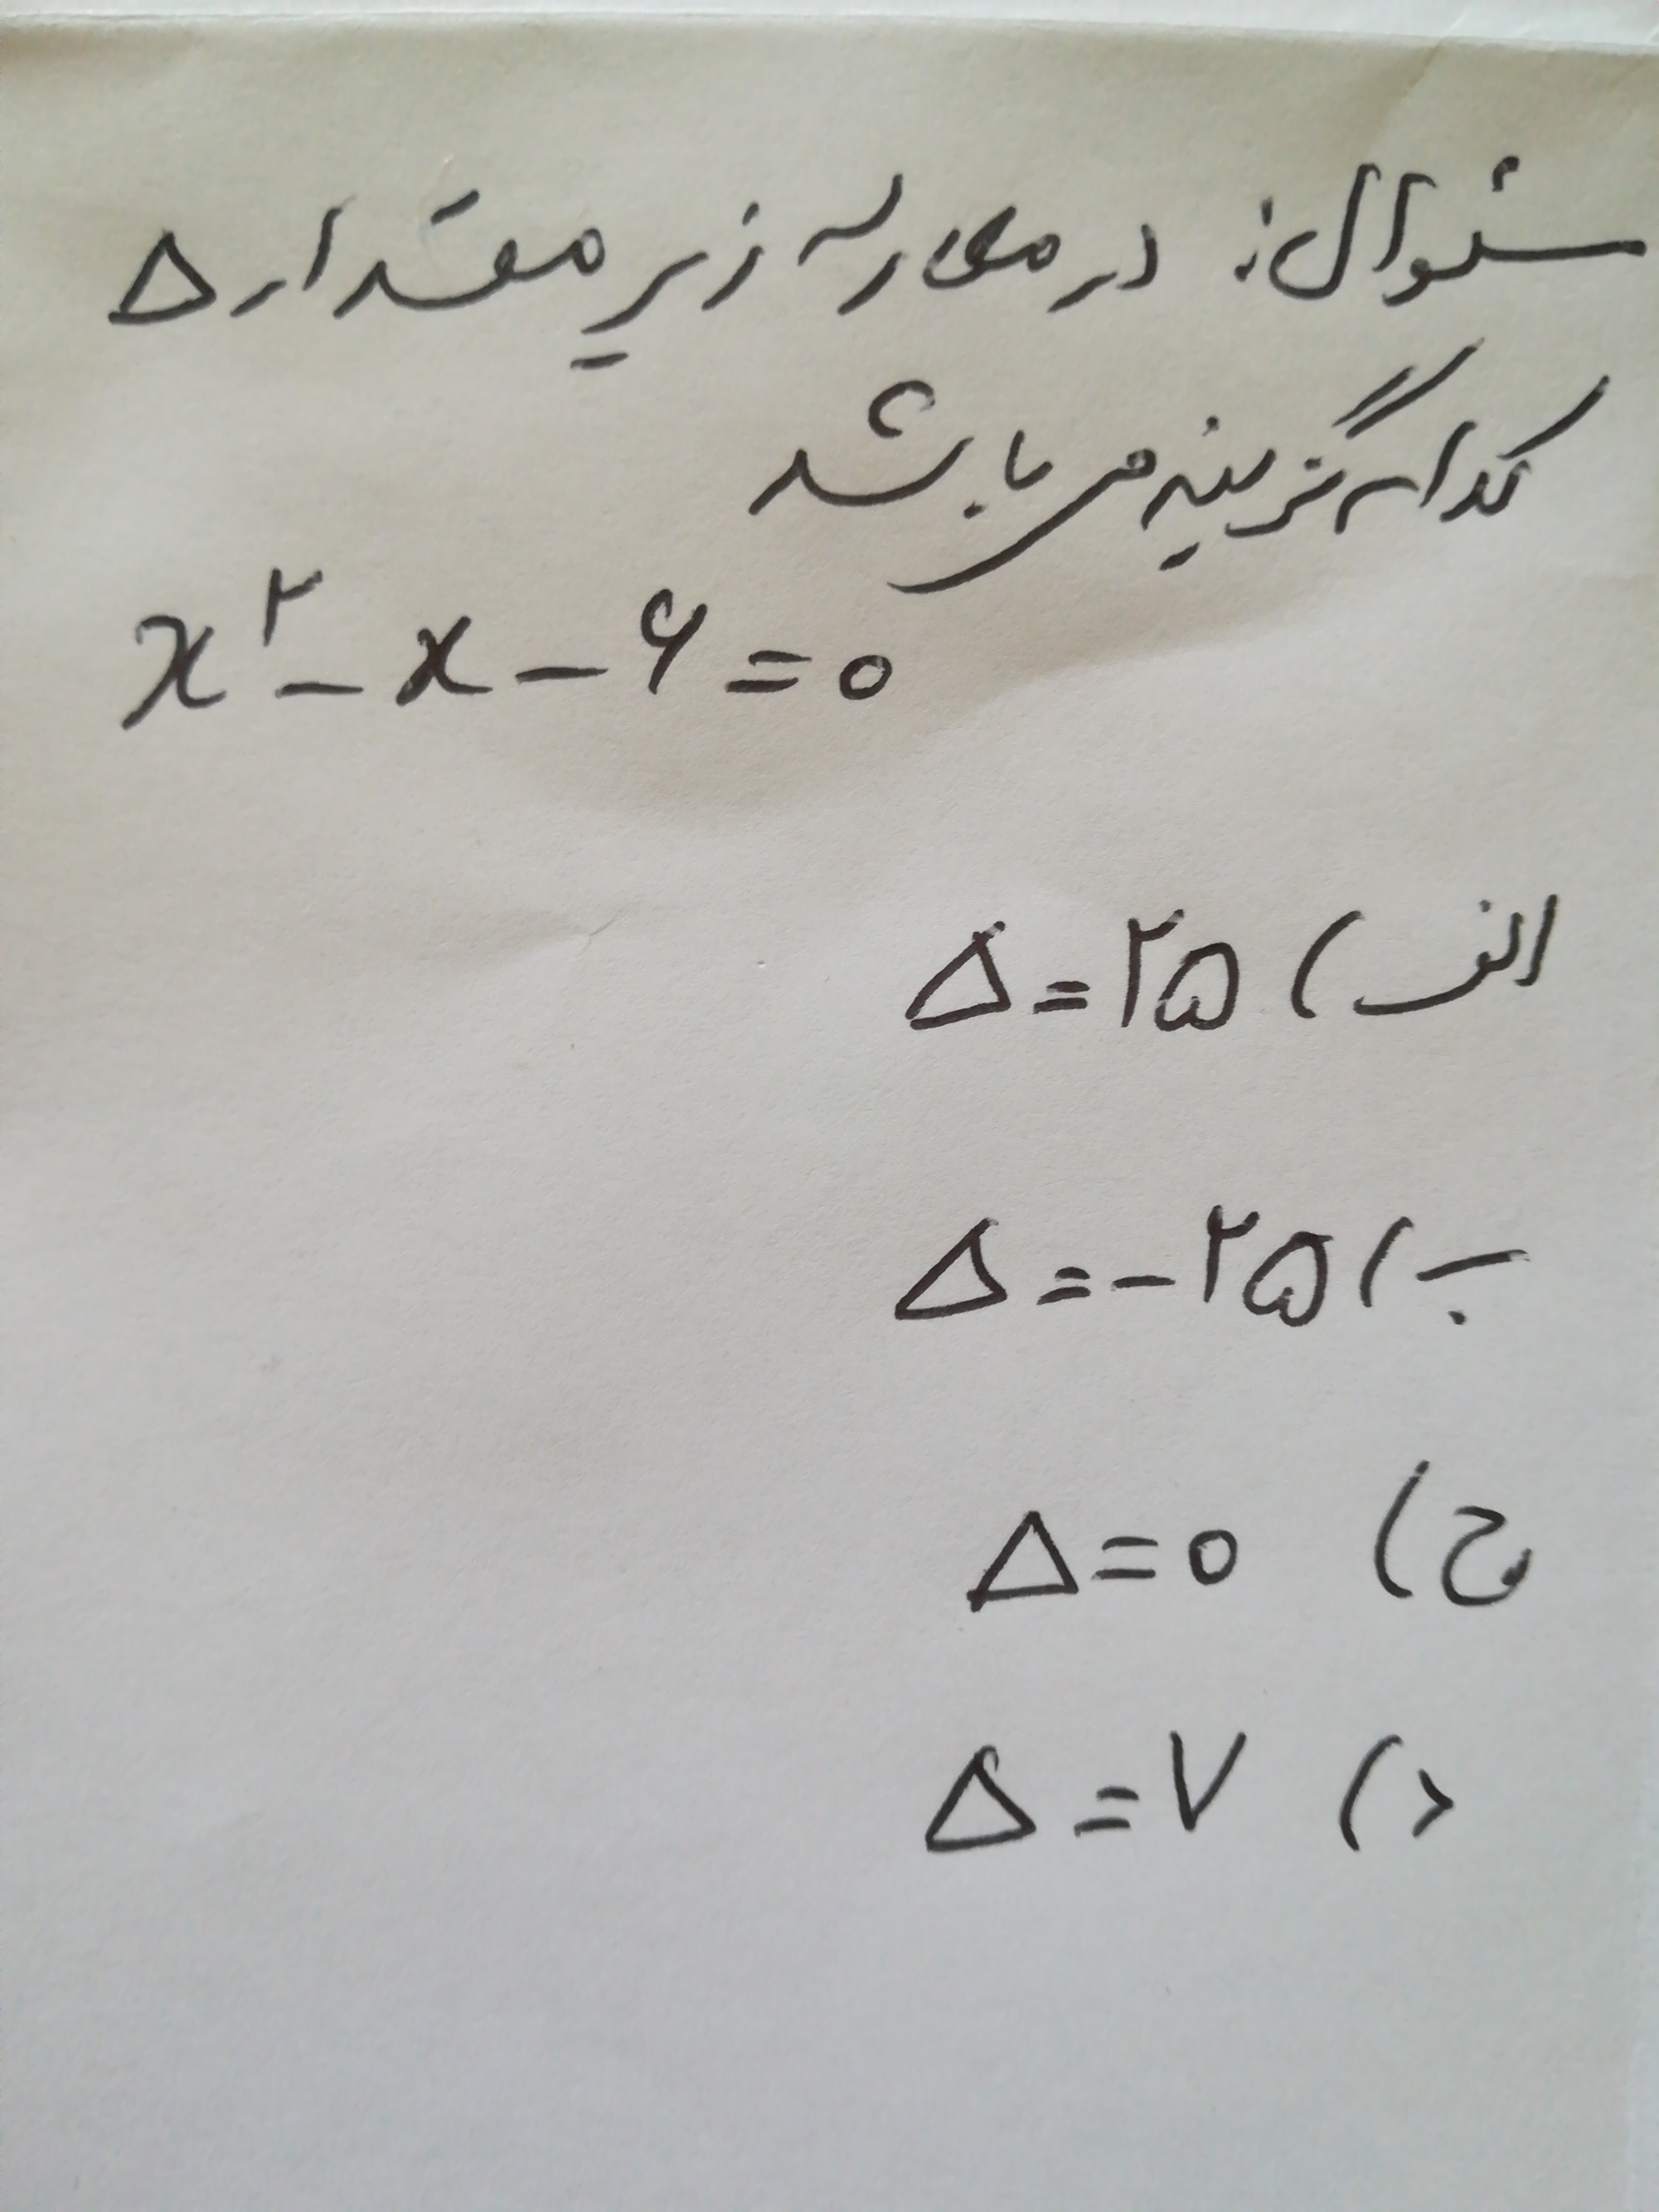 سئوال: در معادله زیر مقدار Δ
کدام گزینه می باشد
x²-x-۶=۰
الف) Δ=۲۵
ب) Δ=-۲۵
ج) Δ=۰
د) Δ=۷